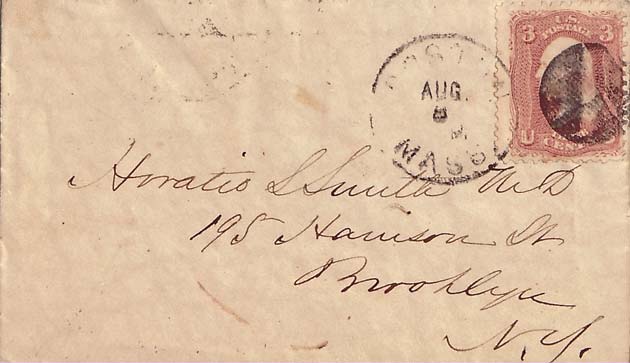 BOSTON
AUG.
8
MASS
3 U.S. 3
POSTAGE
U
CENTS
Horatio S Smith M.D
195 Harrison St.
Brooklyn
N.Y.